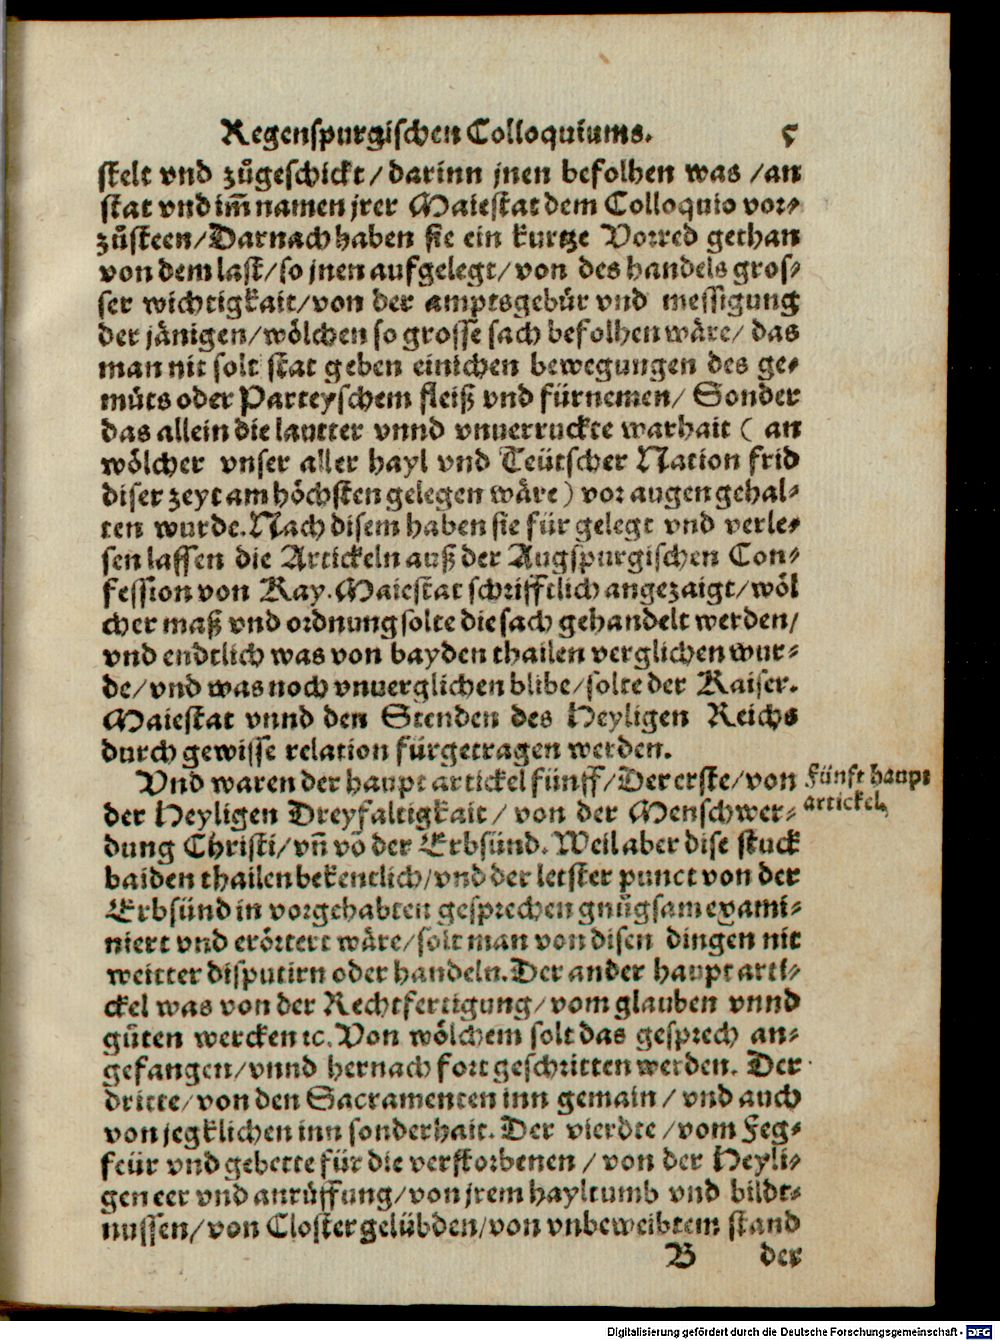 Regenspurgischen Colloquiums. 5
stelt vnd zůgeschickt / darinn jnen befolhen was / an
stat vnd im̃ namen jrer Maiestat dem Colloquio vor⸗
zůsteen / Darnach haben sie ein kurtze Vorred gethan
von dem last / so jnen aufgelegt / von des handels gros⸗
ser wichtigkait / von der amptsgebür vnd messigung
der jänigen / wölchen so grosse sach befolhen wäre / das
man nit solt stat geben einichen bewegungen des ge⸗
müts oder Parteyschem fleiß vnd fürnemen / Sonder
das allein die lautter vnnd vnuerruckte warhait ( an
wölcher vnser aller hayl vnd Teütscher Nation frid
diser zeyt am höchsten gelegen wäre ) vor augen gehal⸗
ten wurde. Nach disem haben sie für gelegt vnd verle⸗
sen lassen die Artickeln auß der Augspurgischen Con⸗
fession von Kay. Maiestat schrifftlich angezaigt / wöl
cher maß vnd ordnung solte die sach gehandelt werden /
vnd endtlich was von bayden thailen verglichen wur⸗
de / vnd was noch vnuerglichen blibe / solte der Kaiser.
Maiestat vnnd den Stenden des Heyligen Reichs
durch gewisse relation fürgetragen werden.
Vnd waren der haupt artickel fünff / Der erste / von
Fünff haupt
artickel,
der Heyligen Dreyfaltigkait / von der Menschwer⸗
dung Christi / vñ võ der Erbsünd. Weil aber dise stuck
baiden thailen bekentlich / vnd der letster punct von der
Erbsünd in vorgehabten gesprechen gnůgsam exami⸗
niert vnd erörtert wäre / solt man von disen dingen nit
weitter disputirn oder handeln. Der ander haupt arti⸗
ckel was von der Rechtfertigung / vom glauben vnnd
gůten wercken ꝛc. Von wölchem solt das gesprech an⸗
gefangen / vnnd hernach fort geschritten werden. Der
dritte / von den Sacramenten inn gemain / vnd auch
von jegklichen inn sonderhait. Der vierdte / vom Feg⸗
feür vnd gebette für die verstorbenen / von der Heyli⸗
gen eer vnd anrüffung / von jrem hayltumb vnd bildt⸗
nussen / von Closter gelübden / von vnbeweibtem stand
B der
Digitalisierung gefördert durch die Deutsche Forschungsgemeinschaft - DFG